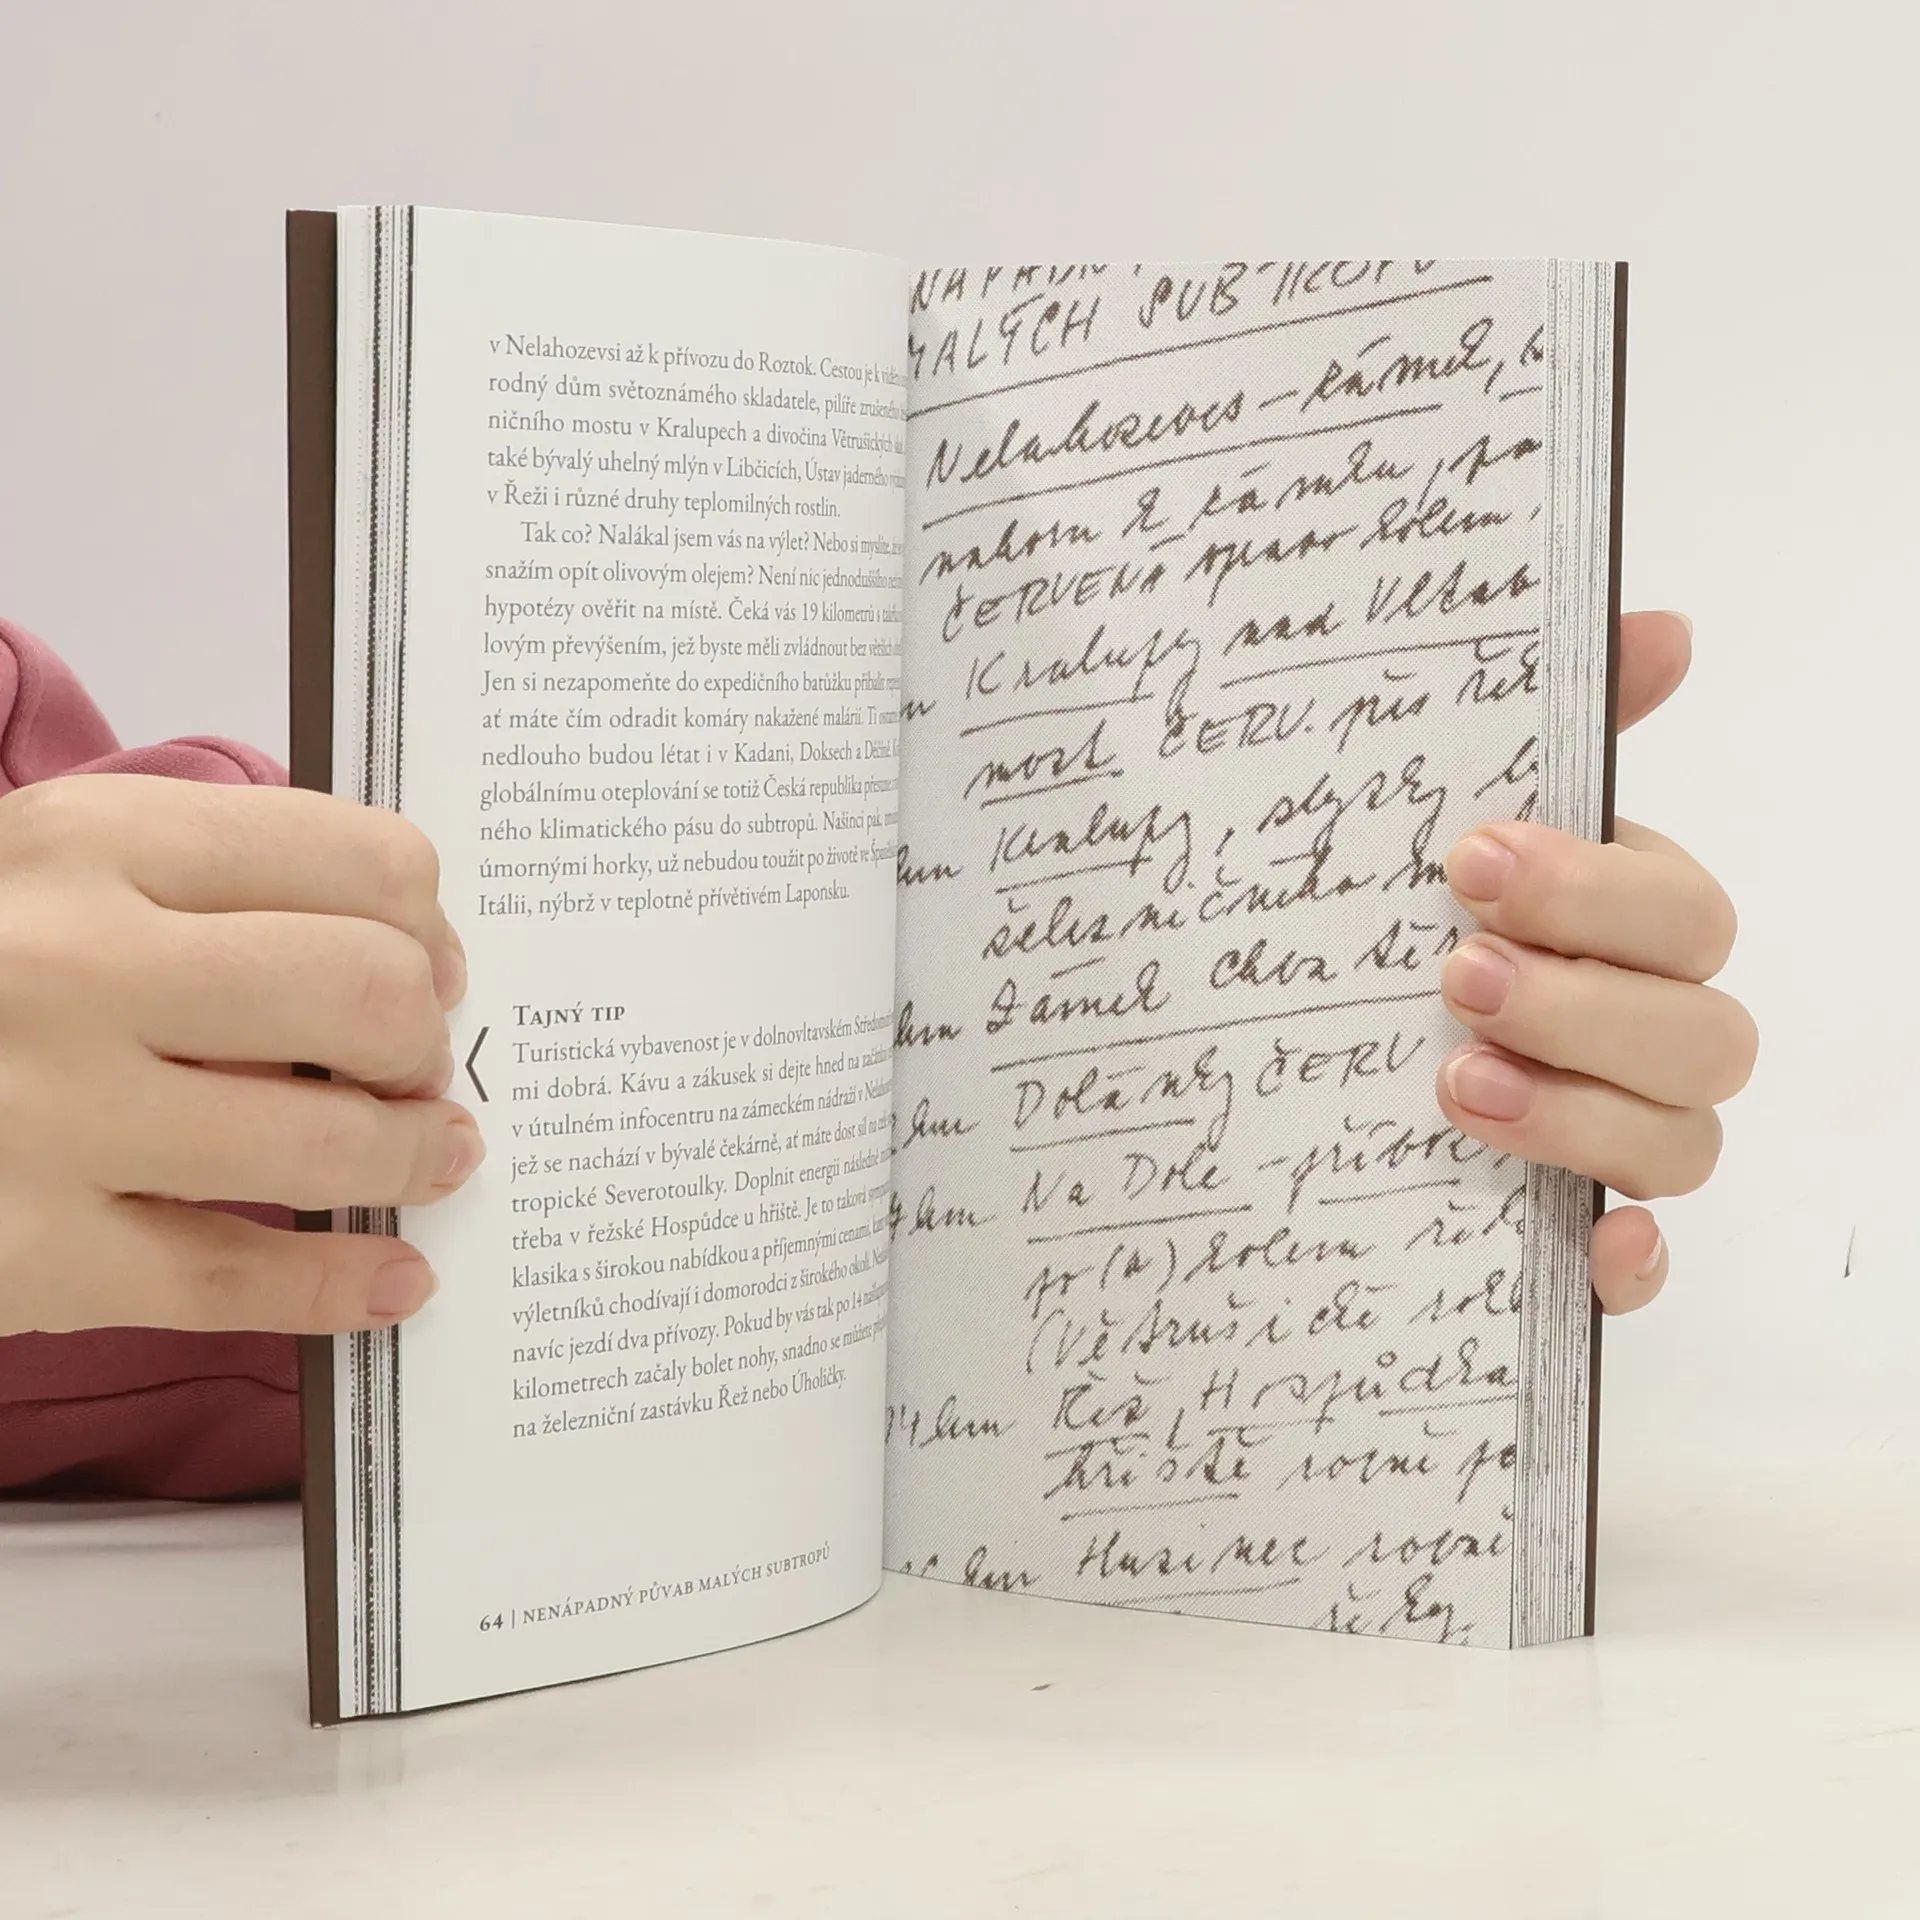 v Nelahozevsi až k přívozu do Roztok. Cestou je k
rodný dům světoznámého skladatele, pilíře zrušeného
ničního mostu v Kralupech a divočina Větrušických
také bývalý uhelný mlýn v Libčicích, Ústav jaderného
v Řeži i různé druhy teplomilných rostlin.
Tak co? Nalákal jsem vás na výlet? Nebo si myslíte,
snažím opít olivovým olejem? Není nic jednoduššího
hypotézy ověřit na místě. Čeká vás 19 kilometrů s
lovým převýšením, jež byste měli zvládnout bez
Jen si nezapomeňte do expedičního batůžku přibalit
ať máte čím odradit komáry nakažené malárií. Ti
nedlouho budou létat i v Kadani, Doksech a Děčíně.
globálnímu oteplování se totiž Česká republika
ného klimatického pásu do subtropů. Našinci pak,
úmornými horky, už nebudou toužit po životě ve
Itálii, nýbrž v teplotně přívětivém Laponsku.
TAJNÝ TIP
Turistická vybavenost je v dolnovltavském
mi dobrá. Kávu a zákusek si dejte hned na
v útulném infocentru na zámeckém nádraží v
jež se nachází v bývalé čekárně, ať máte dost sil na
tropické Severotoulky. Doplnit energii následně
třeba v řežské Hospůdce u hřiště. Je to taková
klasika s širokou nabídkou a příjemnými cenami,
výletníků chodívají i domorodci z širokého okolí.
navíc jezdí dva přívozy. Pokud by vás tak po 14
kilometrech začaly bolet nohy, snadno se můžete
na železniční zastávku Řež nebo Úholičky.
64 | NENÁPADNÝ PŮVAB MALÝCH SUBTROPŮ
MALÝCH SUBTROPŮ
Nelahozeves – zámek,
nahoru k zámku, po
ČERVENÁ kolem
Kralupy nad Vltav
most ČERV. přes řek
Kralupy, zbytky
železničního
Zámek Chvatěr
km Dolánky ČERV
km Na Dole – přívoz
po (a) kolem
(Větrušické
14 km Řež, Hospůdka
hřiště rovně po
km Husinec rovně
řeky